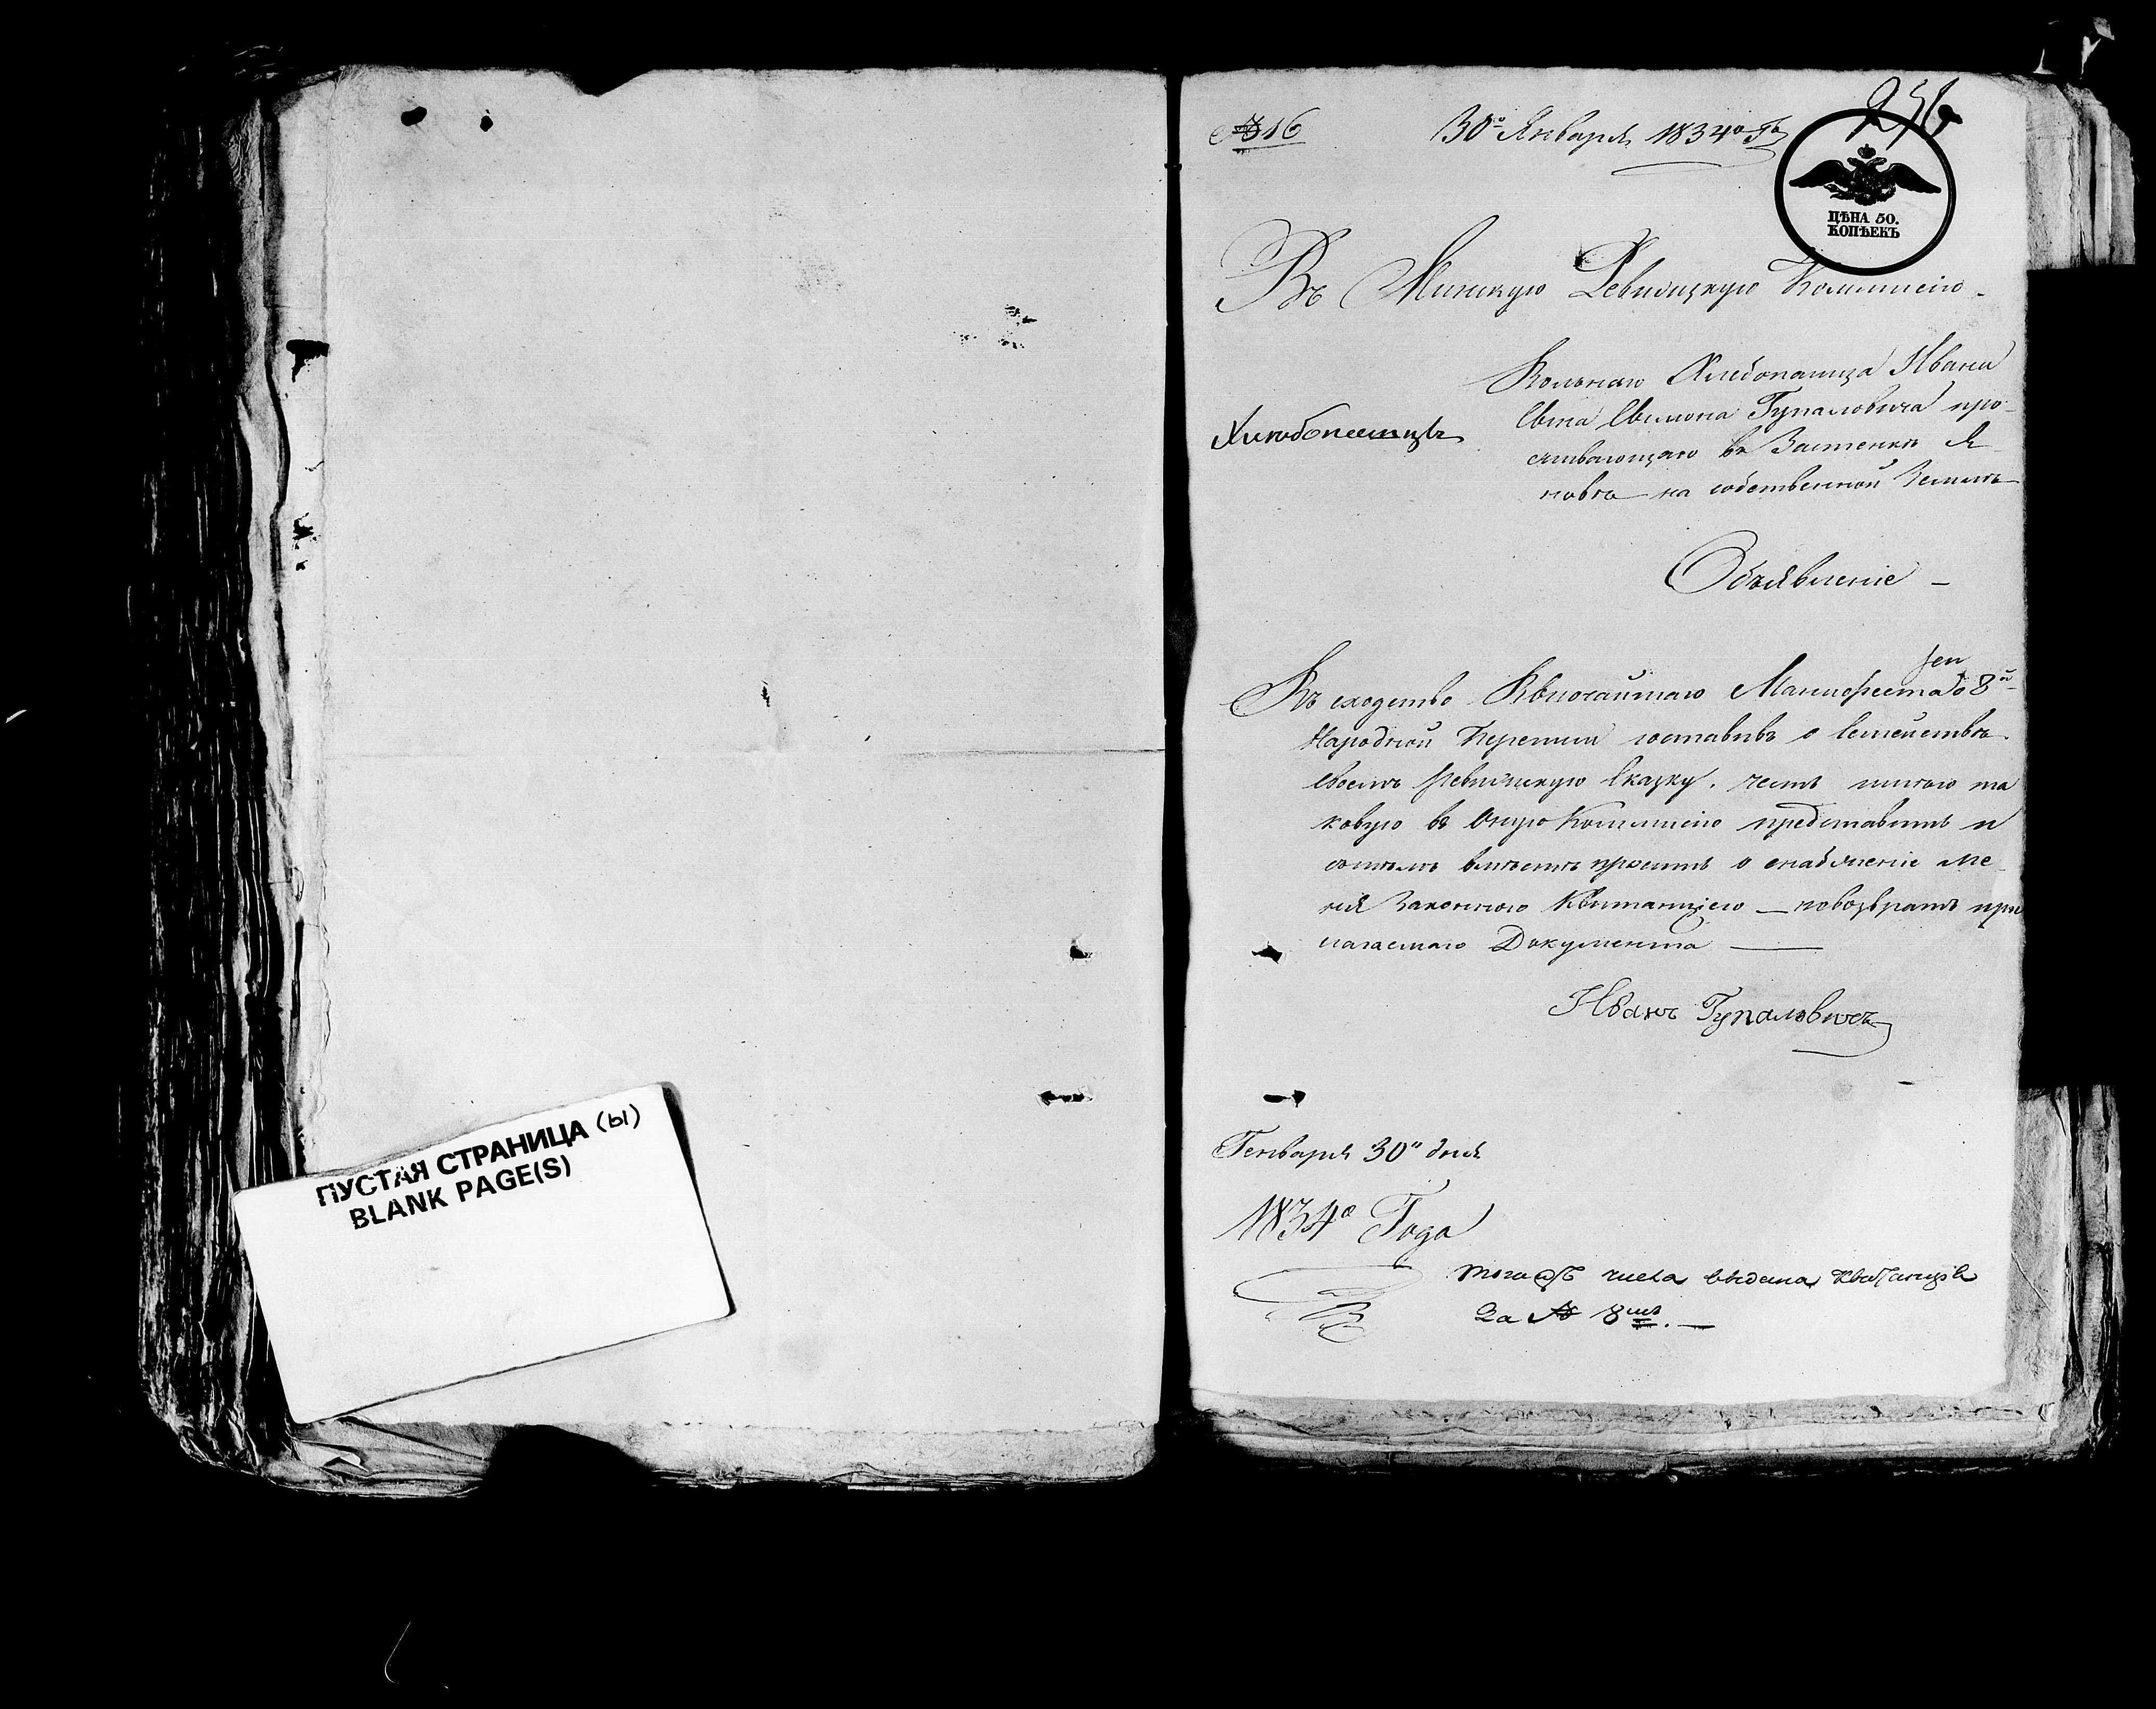 ПУСТАЯ СТРАНИЦА (Ы)
BLANK PAGE(S)
№ 16
30го Января 1834го Гд
256
ЦѢНА 50.
КОПѢЕКЪ
Въ Минскую Ревизскую Коммисію
Вольнаго Хлебопашца Ивана
Хлѣбопашцъ
Сына Симона Гупаловича про-
живающаго въ Застенкѣ Я
новка на собственной Землѣ
Объявленіе
Въ сходство Высочайшаго Манифеста о 8й
Народной Переписи составивъ о Семействѣ
своемъ Ревизскую Сказку, честь имѣю та
ковую въ Оную Коммисію представить и
сътѣмъ вмѣстѣ просить о снабженіе ме-
ня Законною Квитанціею — повозвратъ при
лагаемаго Документа
Иванъ Гупаловичъ
Генваря 30го дня
1834го Года
Того жъ числа выдана Квитанція
За № 8мъ.